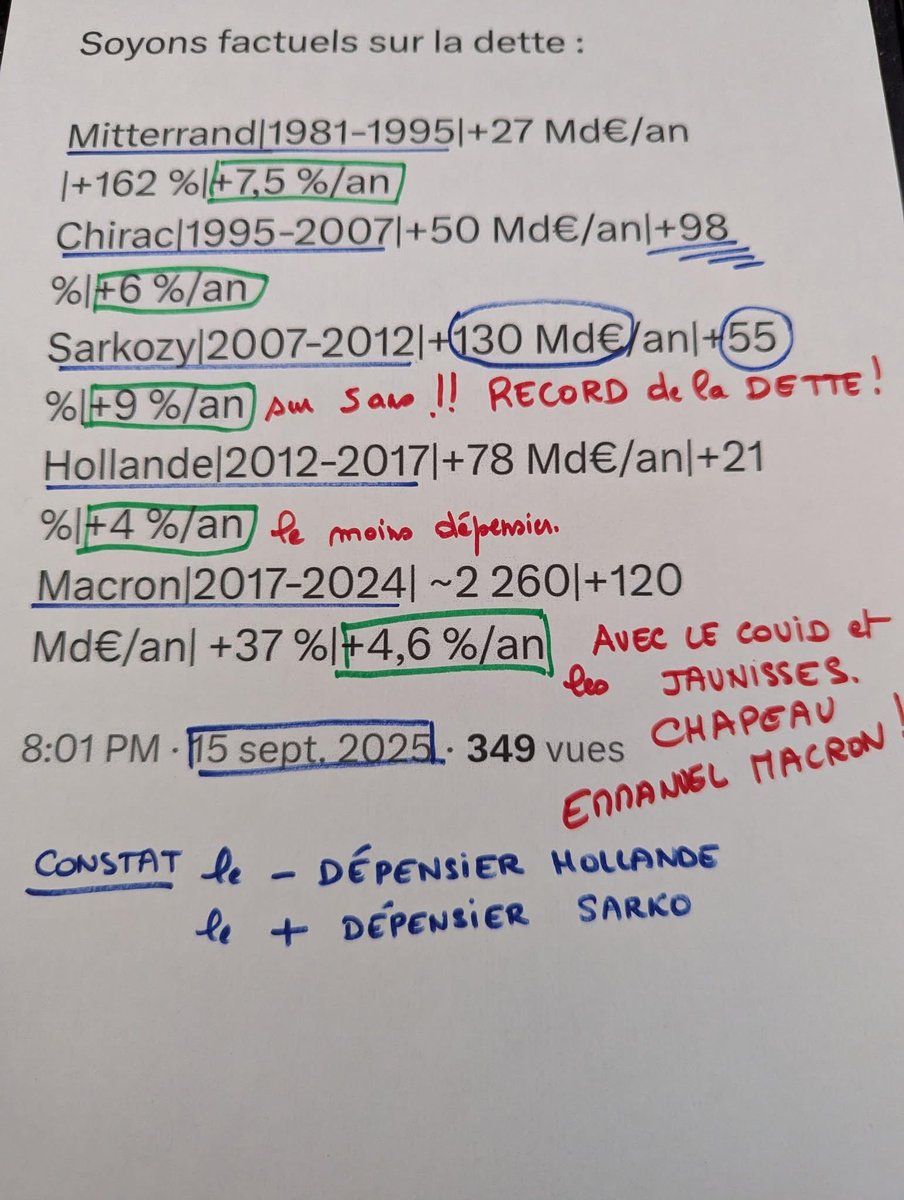 Soyons factuels sur la dette :
Mitterrand|1981-1995|+27 Md€/an
|+162 %|+7,5 %/an
Chirac|1995-2007|+50 Md€/an|+98
%|+6 %/an
Sarkozy|2007-2012|+130 Md€/an|+55
%|+9 %/an sur 5 ans !! RECORD de la DETTE !
Hollande|2012-2017|+78 Md€/an|+21
%|+4 %/an le moins dépensier.
Macron|2017-2024| ~2 260|+120
Md€/an| +37 %|+4,6 %/an AVEC LE COVID et
les JAUNISSES.
CHAPEAU
EMMANUEL MACRON !
8:01 PM · 15 sept. 2025 · 349 vues
CONSTAT le - DÉPENSIER HOLLANDE
le + DÉPENSIER SARKO